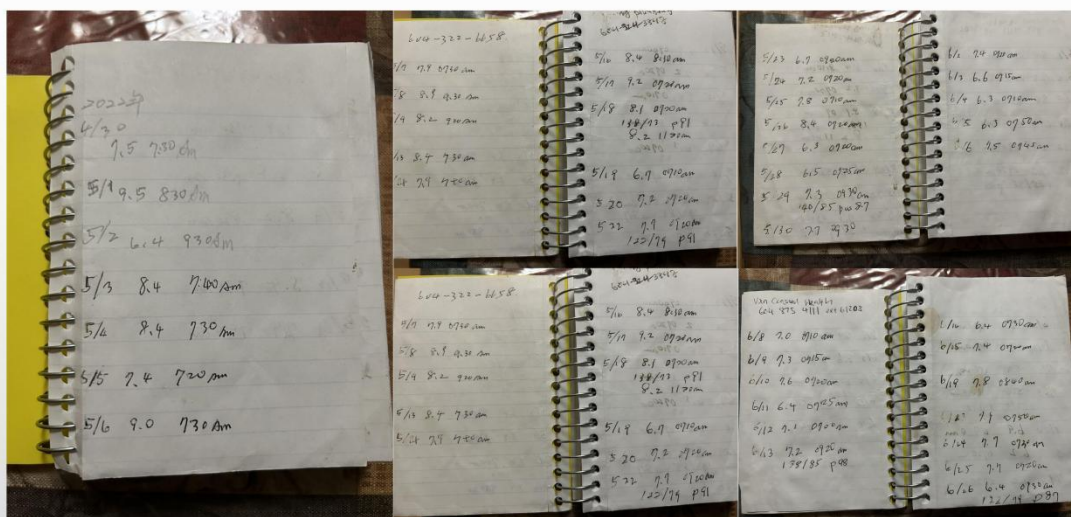 2022年
4/30
7.5 730 am
5/1 9.5 830 am
5/2 6.4 930 am
5/3 8.4 7:00 Am
5/4 8.4 730 Am
5/5 7.4 720 am
5/6 9.0 730 Am
604-322-6658
5/7 7.9 0740 am
5/8 8.9 9:30 am
5/9 8.2 920 am
5/13 8.4 730 am
5/16 8.4 8:30 am
5/17 9.2 0720 am
5/18 8.1 0700 am
138/77 p91
8.2 1170 am
5/19 6.7 0710 am
5 20 7.2 0720 am
5 22 7.7 0720 am
122/79 p91
5/23 6.7 0700 am
5/24 7.2 0720 am
5/25 7.8 0710 am
5/26 8.4 0720 am
5/27 6.3 0720 am
5/28 6.5 0725 am
5 29 7.3 0930 am
140/85 pw 87
5/30 7.7 0930
6/2 7.4
6/3 6.6 0715 am
6/4 6.3 0710 am
6 5 6.3 0750 am
6 7.5 0745 am
604-322-6658
5/7 7.9 0740 am
5/8 8.9 9:30 am
5/9 8.2 920 am
5/13 8.4 730 am
5/16 8.4 8:30 am
5/17 9.2 0720 am
5/18 8.1 0700 am
138/77 p91
8.2 1170 am
5/19 6.7 0710 am
5 20 7.2 0720 am
5 22 7.7 0720 am
122/79 p91
604 875 4111
6/8 7.0 0710 am
6/9 7.3 0715 am
6/10 7.6 0720 am
6/11 6.4 0725 am
6/12 7.1 0700 am
6/13 7.2 0720 am
138/85 p98
6/14 6.4 0730 am
6/15 7.4 0720 am
6/19 7.8 0840 am
7.1 0750 am
6/24 7.7 0730 am
6/25 7.7 0720 am
6/26 6.4 0730 am
132/78 p87